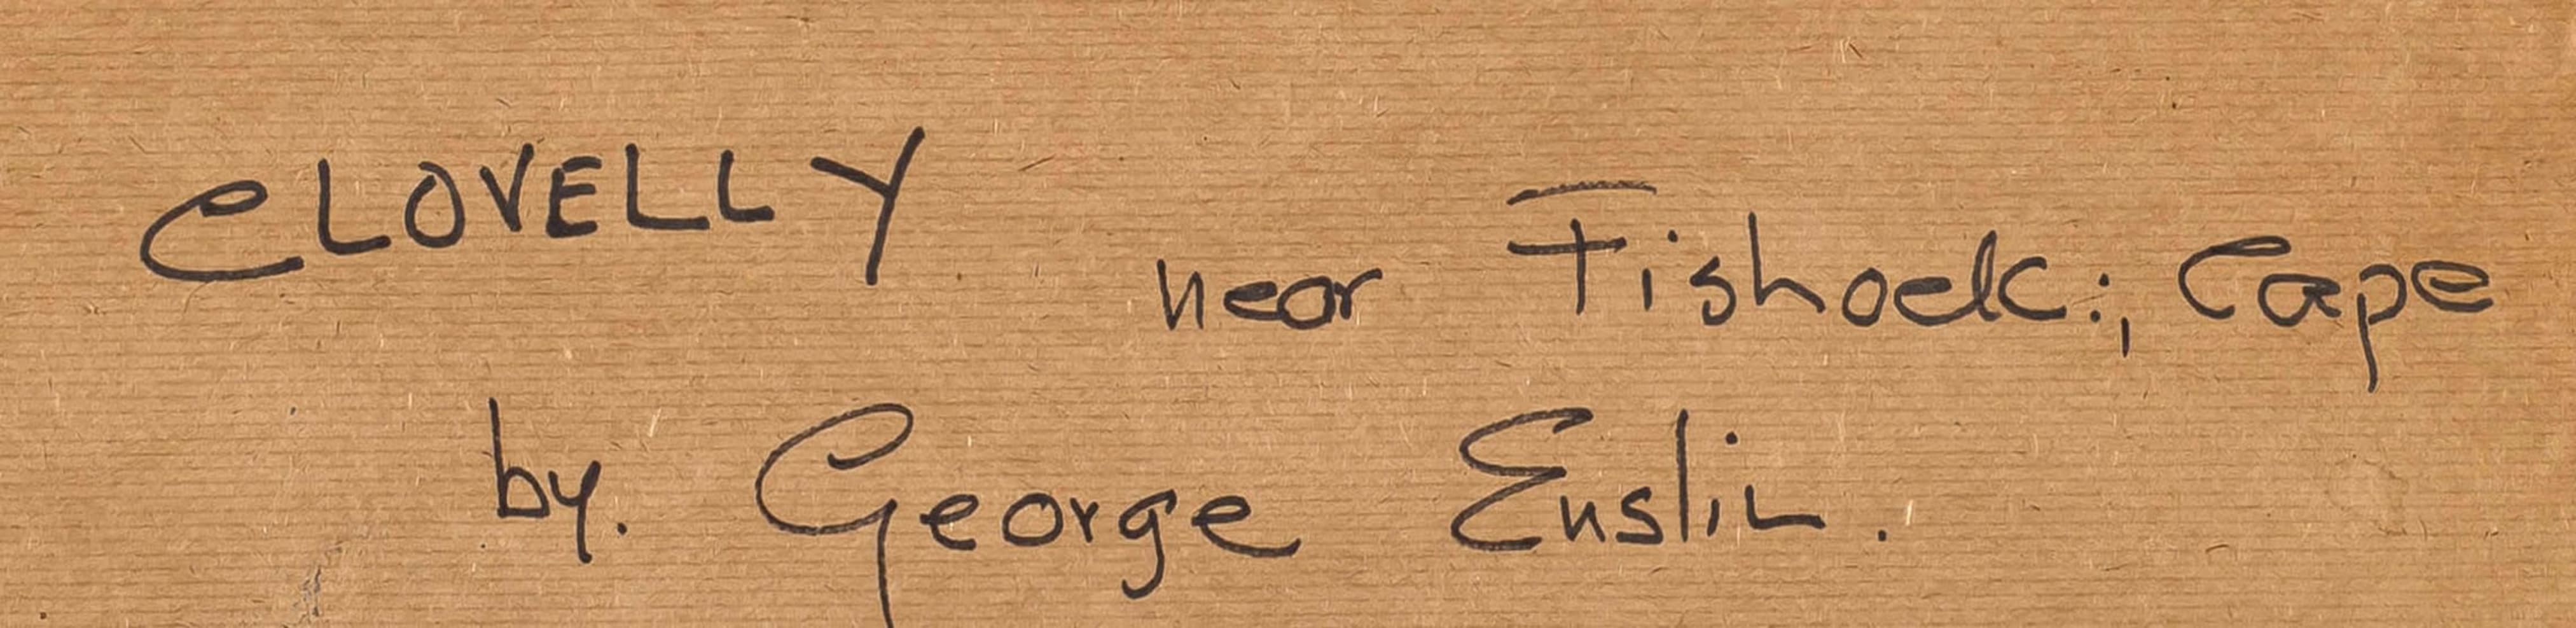 CLOVELLY near Fishoek:, Cape
by. George Enslin.